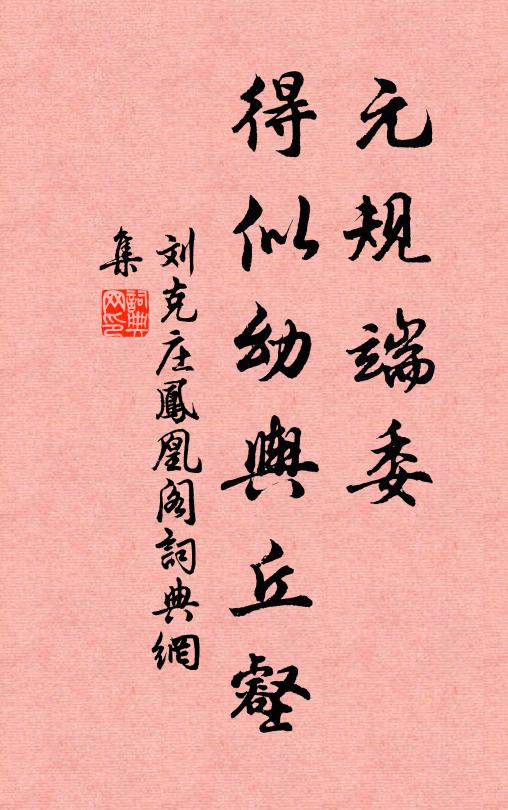 元規端委
得似幼輿丘壑
刘克庄鳳凰阁詞典網
集
詞典网印